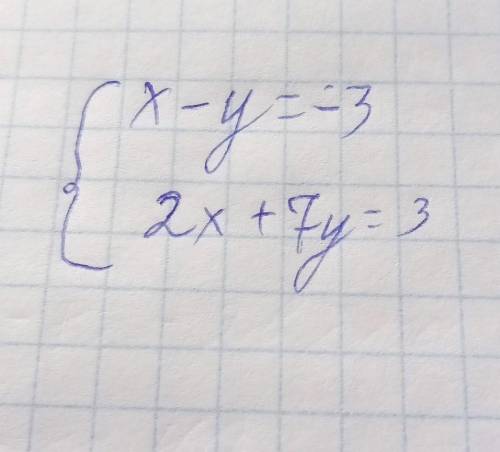 x - y = -3
2x + 7y = 3